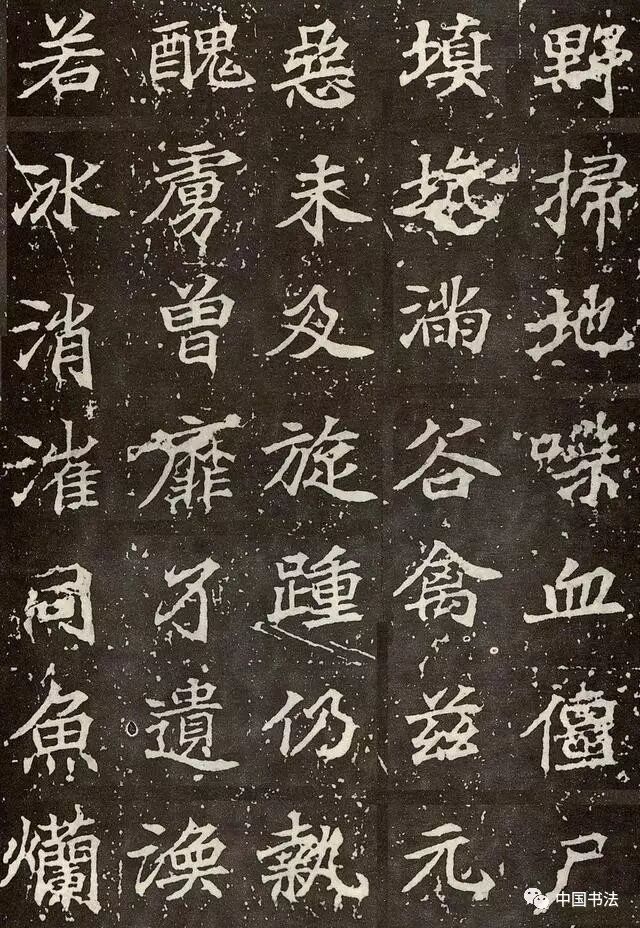 野掃地喋血僵尸
填坑滿谷禽兹元
惡未及旋踵仍執
醜虜曾靡孑遺渙
若冰消漼同魚爛
中国书法